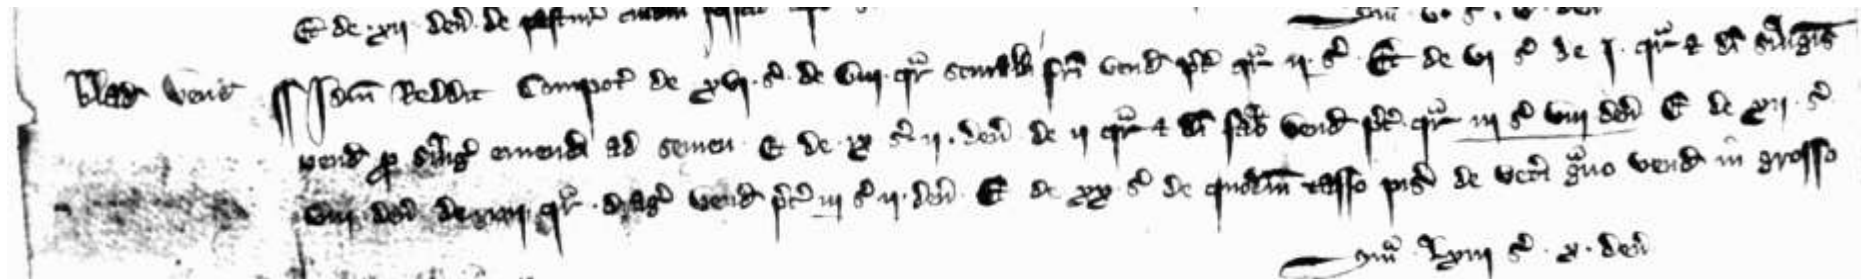 Et de xij den̄ de
sm̄ v s̄ v den̄
Blad vend Idem Redd Compot̄ de xvj s̄ de viij qr̄ vend p̄c qr̄ ij s̄ Et de vj s̄ de j qr̄ & di silīgīs
vend p silīg emend ad semen Et de ix s̄ ij den̄ de ij qr̄ & di fab vend p̄c qr̄ iij s̄ viij den̄ Et de xij s̄
viij den̄ de iiij qr̄ drag vend p̄c iij s̄ ij den̄ Et de xx s̄ de quodam tasso pis̄ de vet̄i gͣno vend in grosso
sm̄ Lxiij s̄ x den̄